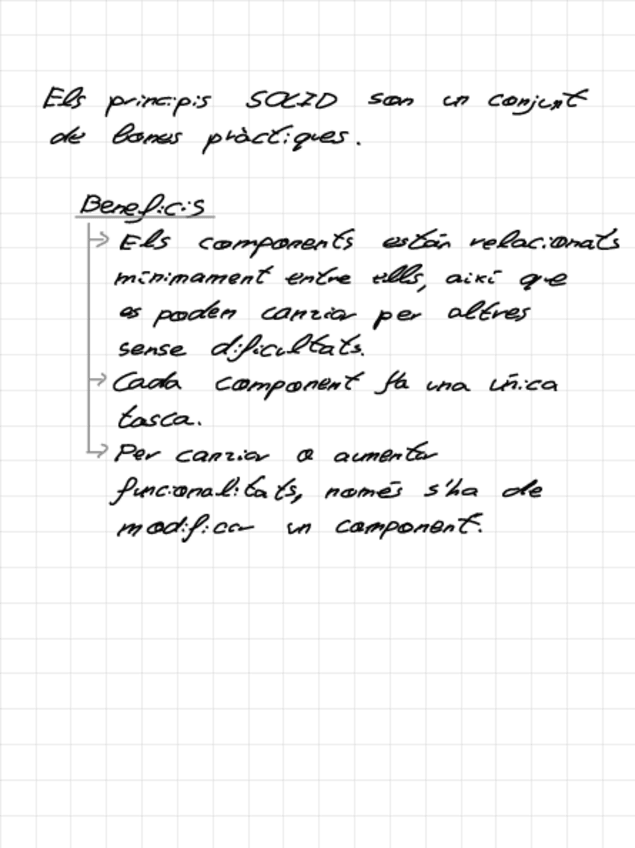 Els principis SOLID son un conjunt
de bones pràctiques.
Beneficis
Els components están relacionats
mínimament entre ells, aixi que
es poden canviar per altres
sense dificultats.
Cada component fa una única
tasca.
Per canviar o aumentar
funcionalitats, només s'ha de
modificar un component.